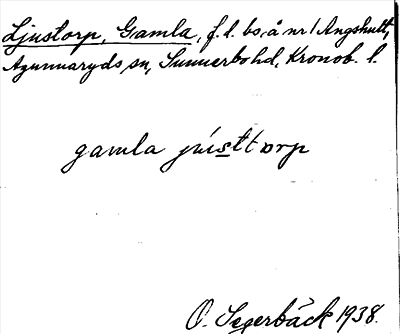 Ljustorp, Gamla, f.d. bs, å nr 1 Ängshult,
Agunnaryds sn, Sunnerbo hd, Kronob. l.
gamla jússttorp
O. Segerbäck 1938.